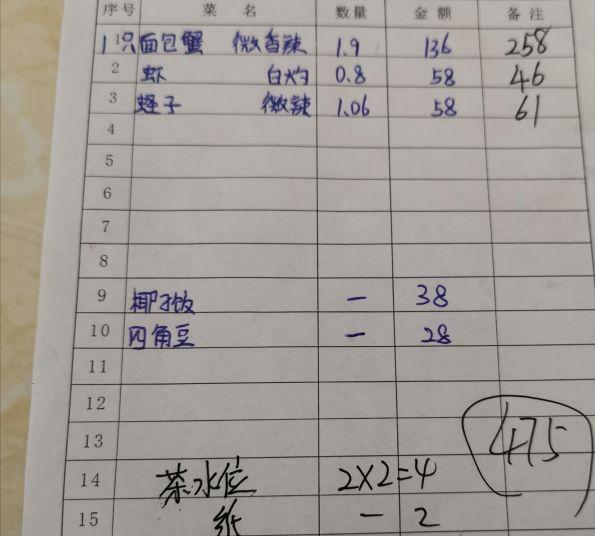 序号 菜名 数量 金额 备注
1 1只面包蟹 微香辣 1.9 136 258
2 虾 白灼 0.8 58 46
3 蛏子 微辣 1.06 58 61
4
5
6
7
8
9 椰子饭 一 38
10 四角豆 一 28
11
12
13 475
14 茶水位 2×2=4
15 纸 一 2